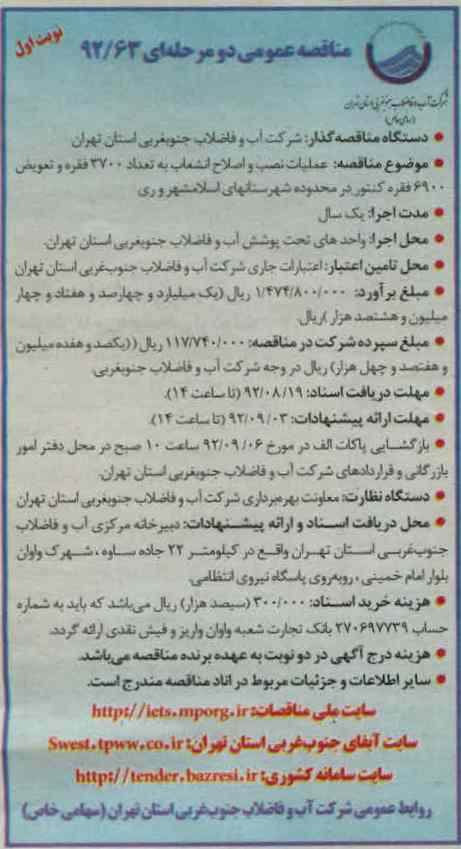 نوبت اول
مناقصه عمومی دو مرحله‌ای ۹۲/۶۳
شرکت آب و فاضلاب جنوبغربی استان تهران
(سهامی خاص)
● دستگاه مناقصه گذار: شرکت آب و فاضلاب جنوبغربی استان تهران
● موضوع مناقصه: عملیات نصب و اصلاح انشعاب به تعداد ۳۷۰۰ فقره و تعویض
۶۹۰۰ فقره کنتور در محدوده شهرستانهای اسلامشهر و ری
● مدت اجرا: یک سال
● محل اجرا: واحد های تحت پوشش آب و فاضلاب جنوبغربی استان تهران.
● محل تامین اعتبار: اعتبارات جاری شرکت آب و فاضلاب جنوب‌غربی استان تهران
● مبلغ برآورد: ۱/۴۷۴/۸۰۰/۰۰۰ ریال (یک میلیارد و چهارصد و هفتاد و چهار
میلیون و هشتصد هزار )ریال.
● مبلغ سپرده شرکت در مناقصه: ۱۱۷/۷۴۰/۰۰۰ ریال ((یکصد و هفده میلیون
و هفتصد و چهل هزار) ریال در وجه شرکت آب و فاضلاب جنوبغربی.
● مهلت دریافت اسناد: ۹۲/۰۸/۱۹ (تا ساعت ۱۴).
● مهلت ارائه پیشنهادات: ۹۲/۰۹/۰۳ (تا ساعت ۱۴).
● بازگشایی پاکات الف در مورخ ۹۲/۰۹/۰۶ ساعت ۱۰ صبح در محل دفتر امور
بازرگانی و قراردادهای شرکت آب و فاضلاب جنوبغربی استان تهران.
● دستگاه نظارت: معاونت بهره‌برداری شرکت آب و فاضلاب جنوبغربی استان تهران
● محل دریافت اسناد و ارائه پیشنهادات: دبیرخانه مرکزی آب و فاضلاب
جنوب‌غربی استان تهران واقع در کیلومتر ۲۲ جاده ساوه ، شهرک واوان
بلوار امام خمینی ، روبه‌روی پاسگاه نیروی انتظامی.
● هزینه خرید اسناد: ۳۰۰/۰۰۰ (سیصد هزار) ریال می‌باشد که باید به شماره
حساب ۲۷۰۶۹۷۷۳۹ بانک تجارت شعبه واوان واریز و فیش نقدی ارائه گردد.
● هزینه درج آگهی در دو نوبت به عهده برنده مناقصه می‌باشد.
● سایر اطلاعات و جزئیات مربوط در اناد مناقصه مندرج است.
سایت ملی مناقصات: http://iets.mporg.ir
سایت آبفای جنوب‌غربی استان تهران: Swest.tpww.co.ir
سایت سامانه کشوری: http://tender.bazresi.ir
روابط عمومی شرکت آب و فاضلاب جنوب‌غربی استان تهران (سهامی خاص)